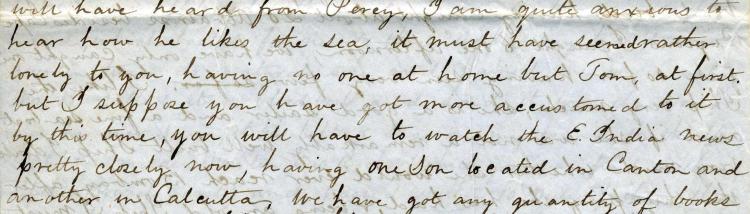 will have heard from Percy, I am quite anxious to
hear how he likes the sea, it must have seemed rather
lonely to you, having no one at home but Tom, at first.
but I suppose you have got more accustomed to it
by this time, you will have to watch the E. India news
pretty closely now, having one Son located in Canton and
another in Calcutta, We have got any quantity of books